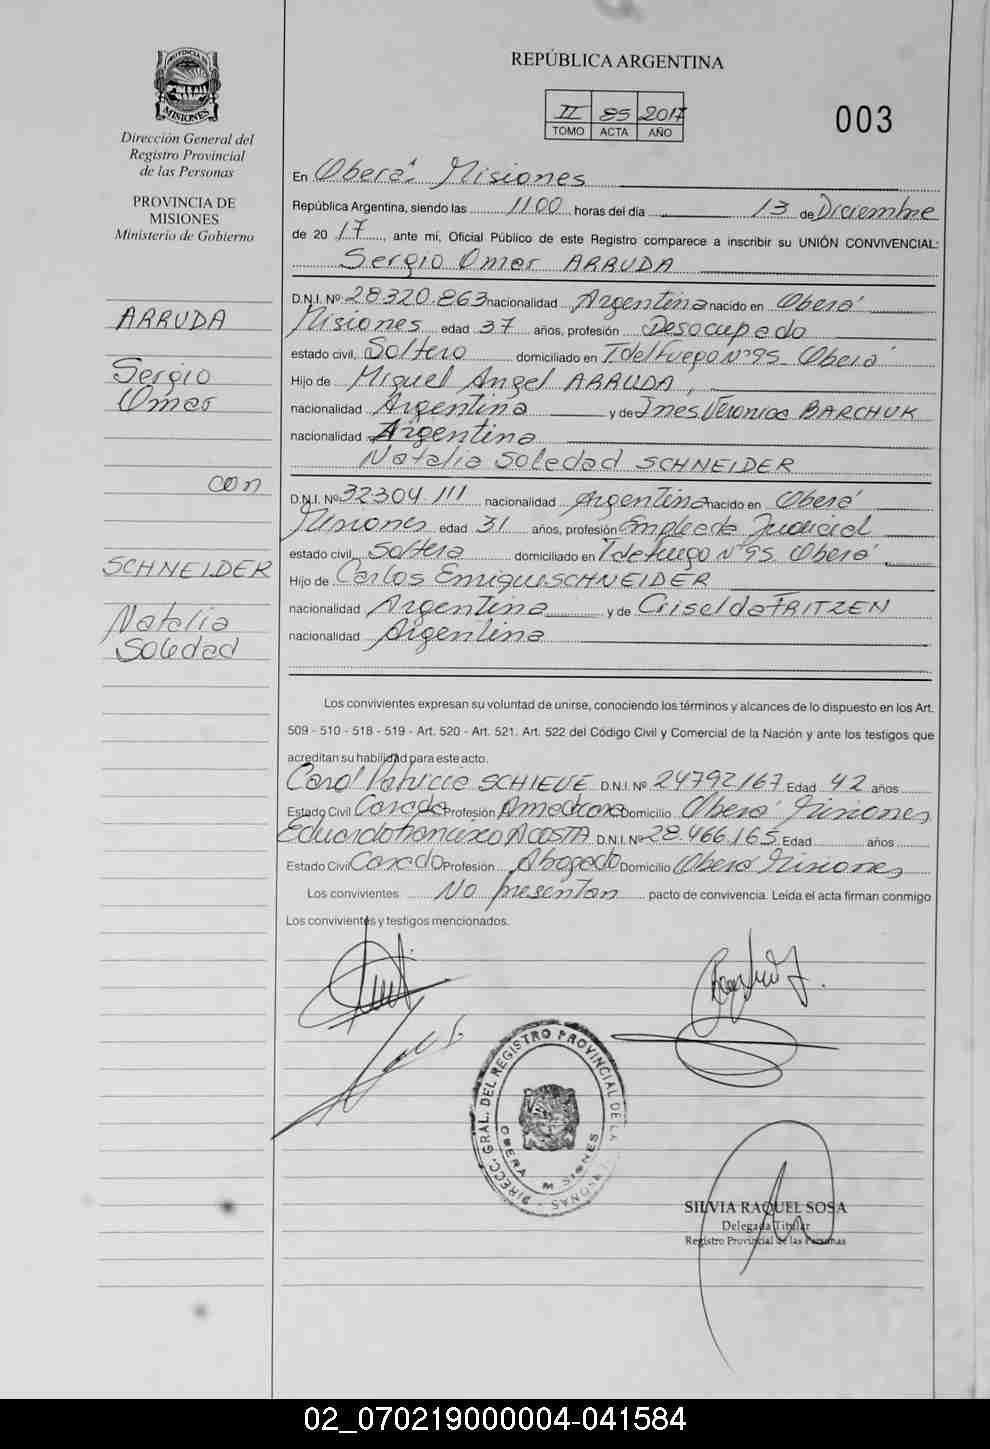 PROVINCIA DE
MISIONES
Dirección General del
Registro Provincial
de las Personas
PROVINCIA DE
MISIONES
Ministerio de Gobierno
ARRUDA
Sergio
Omar
con
SCHNEIDER
Natalia
Soledad
REPÚBLICA ARGENTINA
II 85 2017
TOMO ACTA AÑO
003
En Oberá. Misiones
República Argentina, siendo las 1100 horas del día 13 de Diciembre
de 20 17, ante mi, Oficial Público de este Registro comparece a inscribir su UNIÓN CONVIVENCIAL:
Sergio Omar ARRUDA
D.N.I. Nº 28320.863 nacionalidad Argentina nacido en Oberá
Misiones edad 37 años, profesión Desocupado
estado civil, Soltero domiciliado en T del Fuego Nº 95 Oberá
Hijo de Miguel Angel ARRUDA,
nacionalidad Argentina y de Ines Veronica BARCHUK
nacionalidad Argentina
Natalia Soledad SCHNEIDER
D.N.I. Nº 32304.111 nacionalidad Argentina nacido en Oberá
Misiones edad 31 años, profesión Empleada Judicial
estado civil, Soltera domiciliado en T de Fuego Nº 95 Oberá
Hijo de Carlos Enrique SCHNEIDER
nacionalidad Argentina y de Criselda FRITZEN
nacionalidad Argentina
Los convivientes expresan su voluntad de unirse, conociendo los términos y alcances de lo dispuesto en los Art.
509 - 510 - 518 - 519 - Art. 520 - Art. 521. Art. 522 del Código Civil y Comercial de la Nación y ante los testigos que
acreditan su habilidad para este acto.
Carol Patricia SCHIEVE D.N.I. Nº 24792167 Edad 42 años
Estado Civil Casada Profesión Ama de casa Domicilio Oberá Misiones
Eduardo Francisco ACOSTA D.N.I. Nº 28.466.165 Edad años
Estado Civil Casado Profesión Abogado Domicilio Oberá Misiones
Los convivientes No presentan pacto de convivencia. Leída el acta firman conmigo
Los convivientes y testigos mencionados.
DIRECC. GRAL. DEL REGISTRO PROVINCIAL DE LA
OBERA MISIONES
SILVIA RAQUEL SOSA
Delegada Titular
Registro Provincial de las Personas
02_070219000004-041584